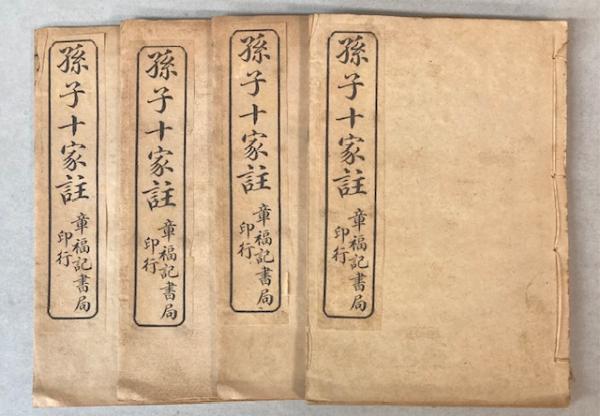 孫子十家註
章福記書局
印行
孫子十家註
章福記書局
印行
孫子十家註
章福記書局
印行
孫子十家註
章福記書局
印行